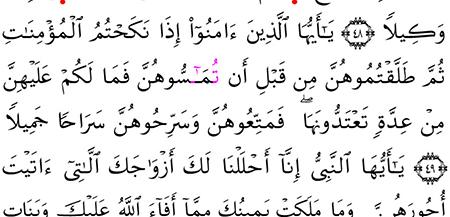 وَكِيلًا ﴿٤٨﴾ يَـٰٓأَيُّهَا ٱلَّذِينَ ءَامَنُوٓا۟ إِذَا نَكَحْتُمُ ٱلْمُؤْمِنَـٰتِ
ثُمَّ طَلَّقْتُمُوهُنَّ مِن قَبْلِ أَن تُمَـٰٓسُّوهُنَّ فَمَا لَكُمْ عَلَيْهِنَّ
مِنْ عِدَّةٍ تَعْتَدُّونَهَا ۖ فَمَتِّعُوهُنَّ وَسَرِّحُوهُنَّ سَرَاحًا جَمِيلًا
﴿٤٩﴾ يَـٰٓأَيُّهَا ٱلنَّبِىُّ إِنَّآ أَحْلَلْنَا لَكَ أَزْوَٰجَكَ ٱلَّـٰتِىٓ ءَاتَيْتَ
أُجُورَهُنَّ وَمَا مَلَكَتْ يَمِينُكَ مِمَّآ أَفَآءَ ٱللَّهُ عَلَيْكَ وَبَنَاتِ